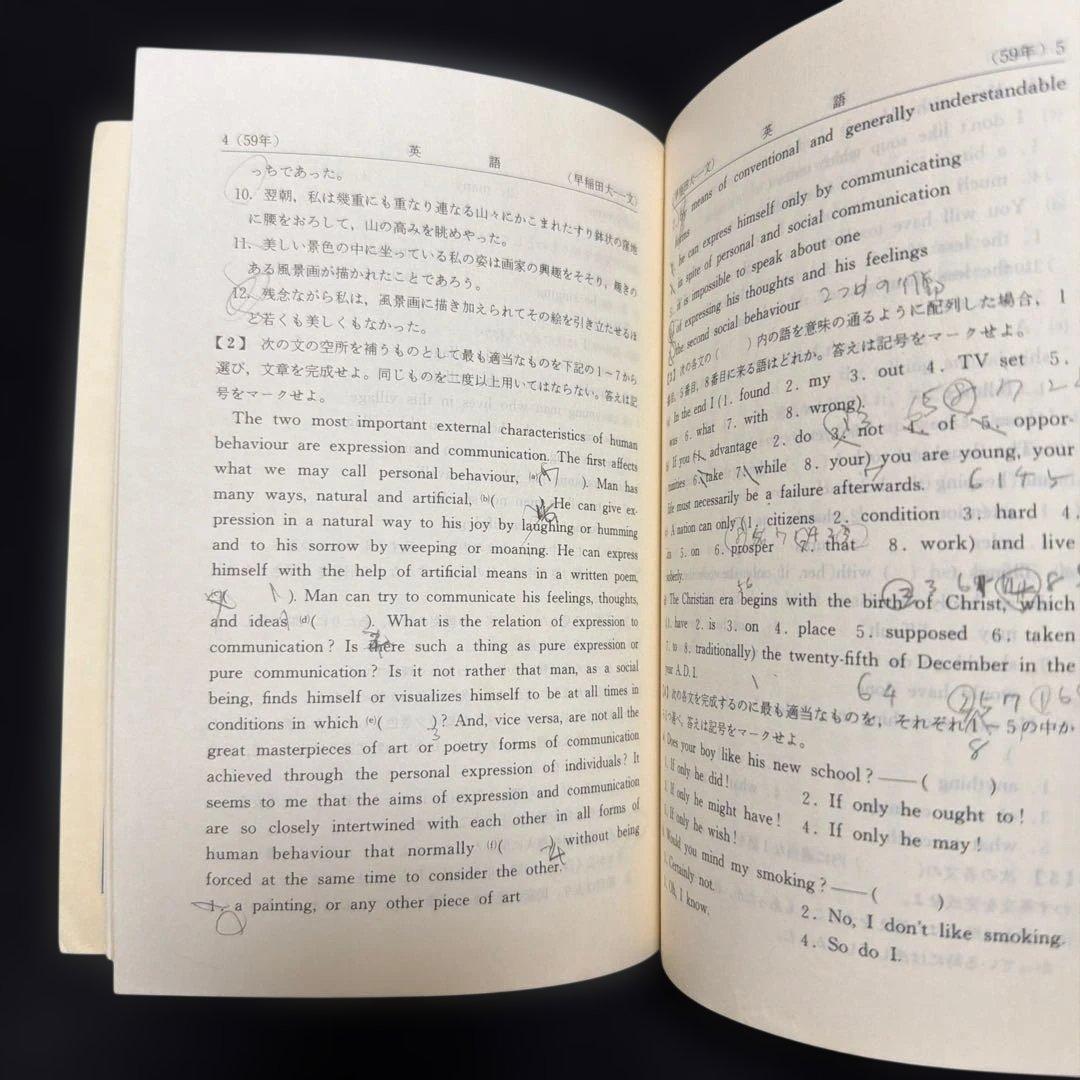 4 (59年)
英 語
(早稲田大一文)
っちであった。
10. 翌朝，私は幾重にも重なり連なる山々にかこまれたすり鉢状の窪地
に腰をおろして，山の高みを眺めやった。
11. 美しい景色の中に坐っている私の姿は画家の興趣をそそり，幾きの
ある風景画が描かれたことであろう。
12. 残念ながら私は，風景画に描き加えられてその絵を引き立たせるほ
ど若くも美しくもなかった。
【2】 次の文の空所を補うものとして最も適当なものを下記の1～7から
選び，文章を完成せよ。同じものを二度以上用いてはならない。答えは記
号をマークせよ。
The two most important external characteristics of human
behaviour are expression and communication. The first affects
what we may call personal behaviour, (a)( ). Man has
many ways, natural and artificial, (b)( . He can give ex-
pression in a natural way to his joy by laughing or humming
and to his sorrow by weeping or moaning. He can express
himself with the help of artificial means in a written poem,
). Man can try to communicate his feelings, thoughts,
and ideas (d)( ). What is the relation of expression to
communication? Is there such a thing as pure expression or
pure communication? Is it not rather that man, as a social
being, finds himself or visualizes himself to be at all times in
conditions in which (e)( )? And, vice versa, are not all the
great masterpieces of art or poetry forms of communication
achieved through the personal expression of individuals? It
seems to me that the aims of expression and communication
are so closely intertwined with each other in all forms of
human behaviour that normally (f)( ) without being
forced at the same time to consider the other.
1. a painting, or any other piece of art
(59年) 5
英 語
早稲田大一文)
by means of conventional and generally understandable
forms
he can express himself only by communicating
in spite of personal and social communication
it is impossible to speak about one
of expressing his thoughts and his feelings
the second social behaviour
次の各文の( )内の語を意味の通るように配列した場合，1
番目，5番目，8番目に来る語はどれか。答えは記号をマークせよ。
In the end I (1. found 2. my 3. out 4. TV set 5.
was 6. what 7. with 8. wrong).
If you (1. advantage 2. do 3. not 4. of 5. oppor-
tunities 6. take 7. while 8. your) you are young, your
life must necessarily be a failure afterwards.
A nation can only (1. citizens 2. condition 3. hard 4.
5. on 6. prosper 7. that 8. work) and live
soberly.
The Christian era begins with the birth of Christ, which
(1. have 2. is 3. on 4. place 5. supposed 6. taken
7. to 8. traditionally) the twenty-fifth of December in the
year A.D.1.
次の各文を完成するのに最も適当なものを，それぞれ1～5の中か
つ選べ。答えは記号をマークせよ。
Does your boy like his new school? ——( )
If only he did! 2. If only he ought to!
If only he might have! 4. If only he may!
If only he wish!
Would you mind my smoking? ——( )
Certainly not. 2. No, I don't like smoking.
Oh, I know. 4. So do I.